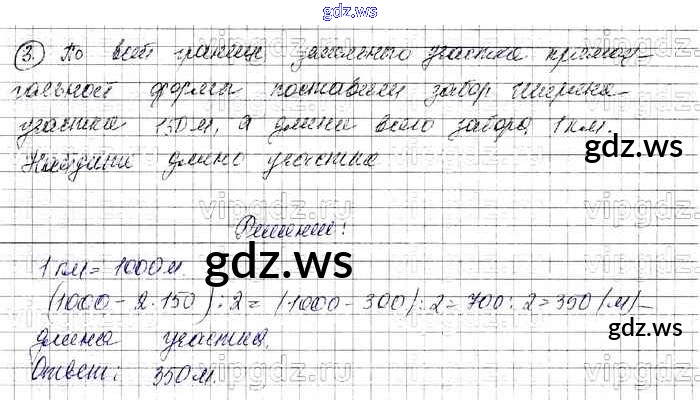 gdz.ws
3. По всей границе земельного участка прямоуг-
гольной формы поставили забор Ширина
участка 150 м, а длина всего забора 1 км.
Найдите длину участка
gdz.ws
Решение:
1 км = 1000 м.
gdz.ws
(1000 - 2·150) : 2 = (1000 - 300) : 2 = 700 : 2 = 350 (м) -
gdz.ws
длина участка.
Ответ: 350 м.
vipgdz.ru